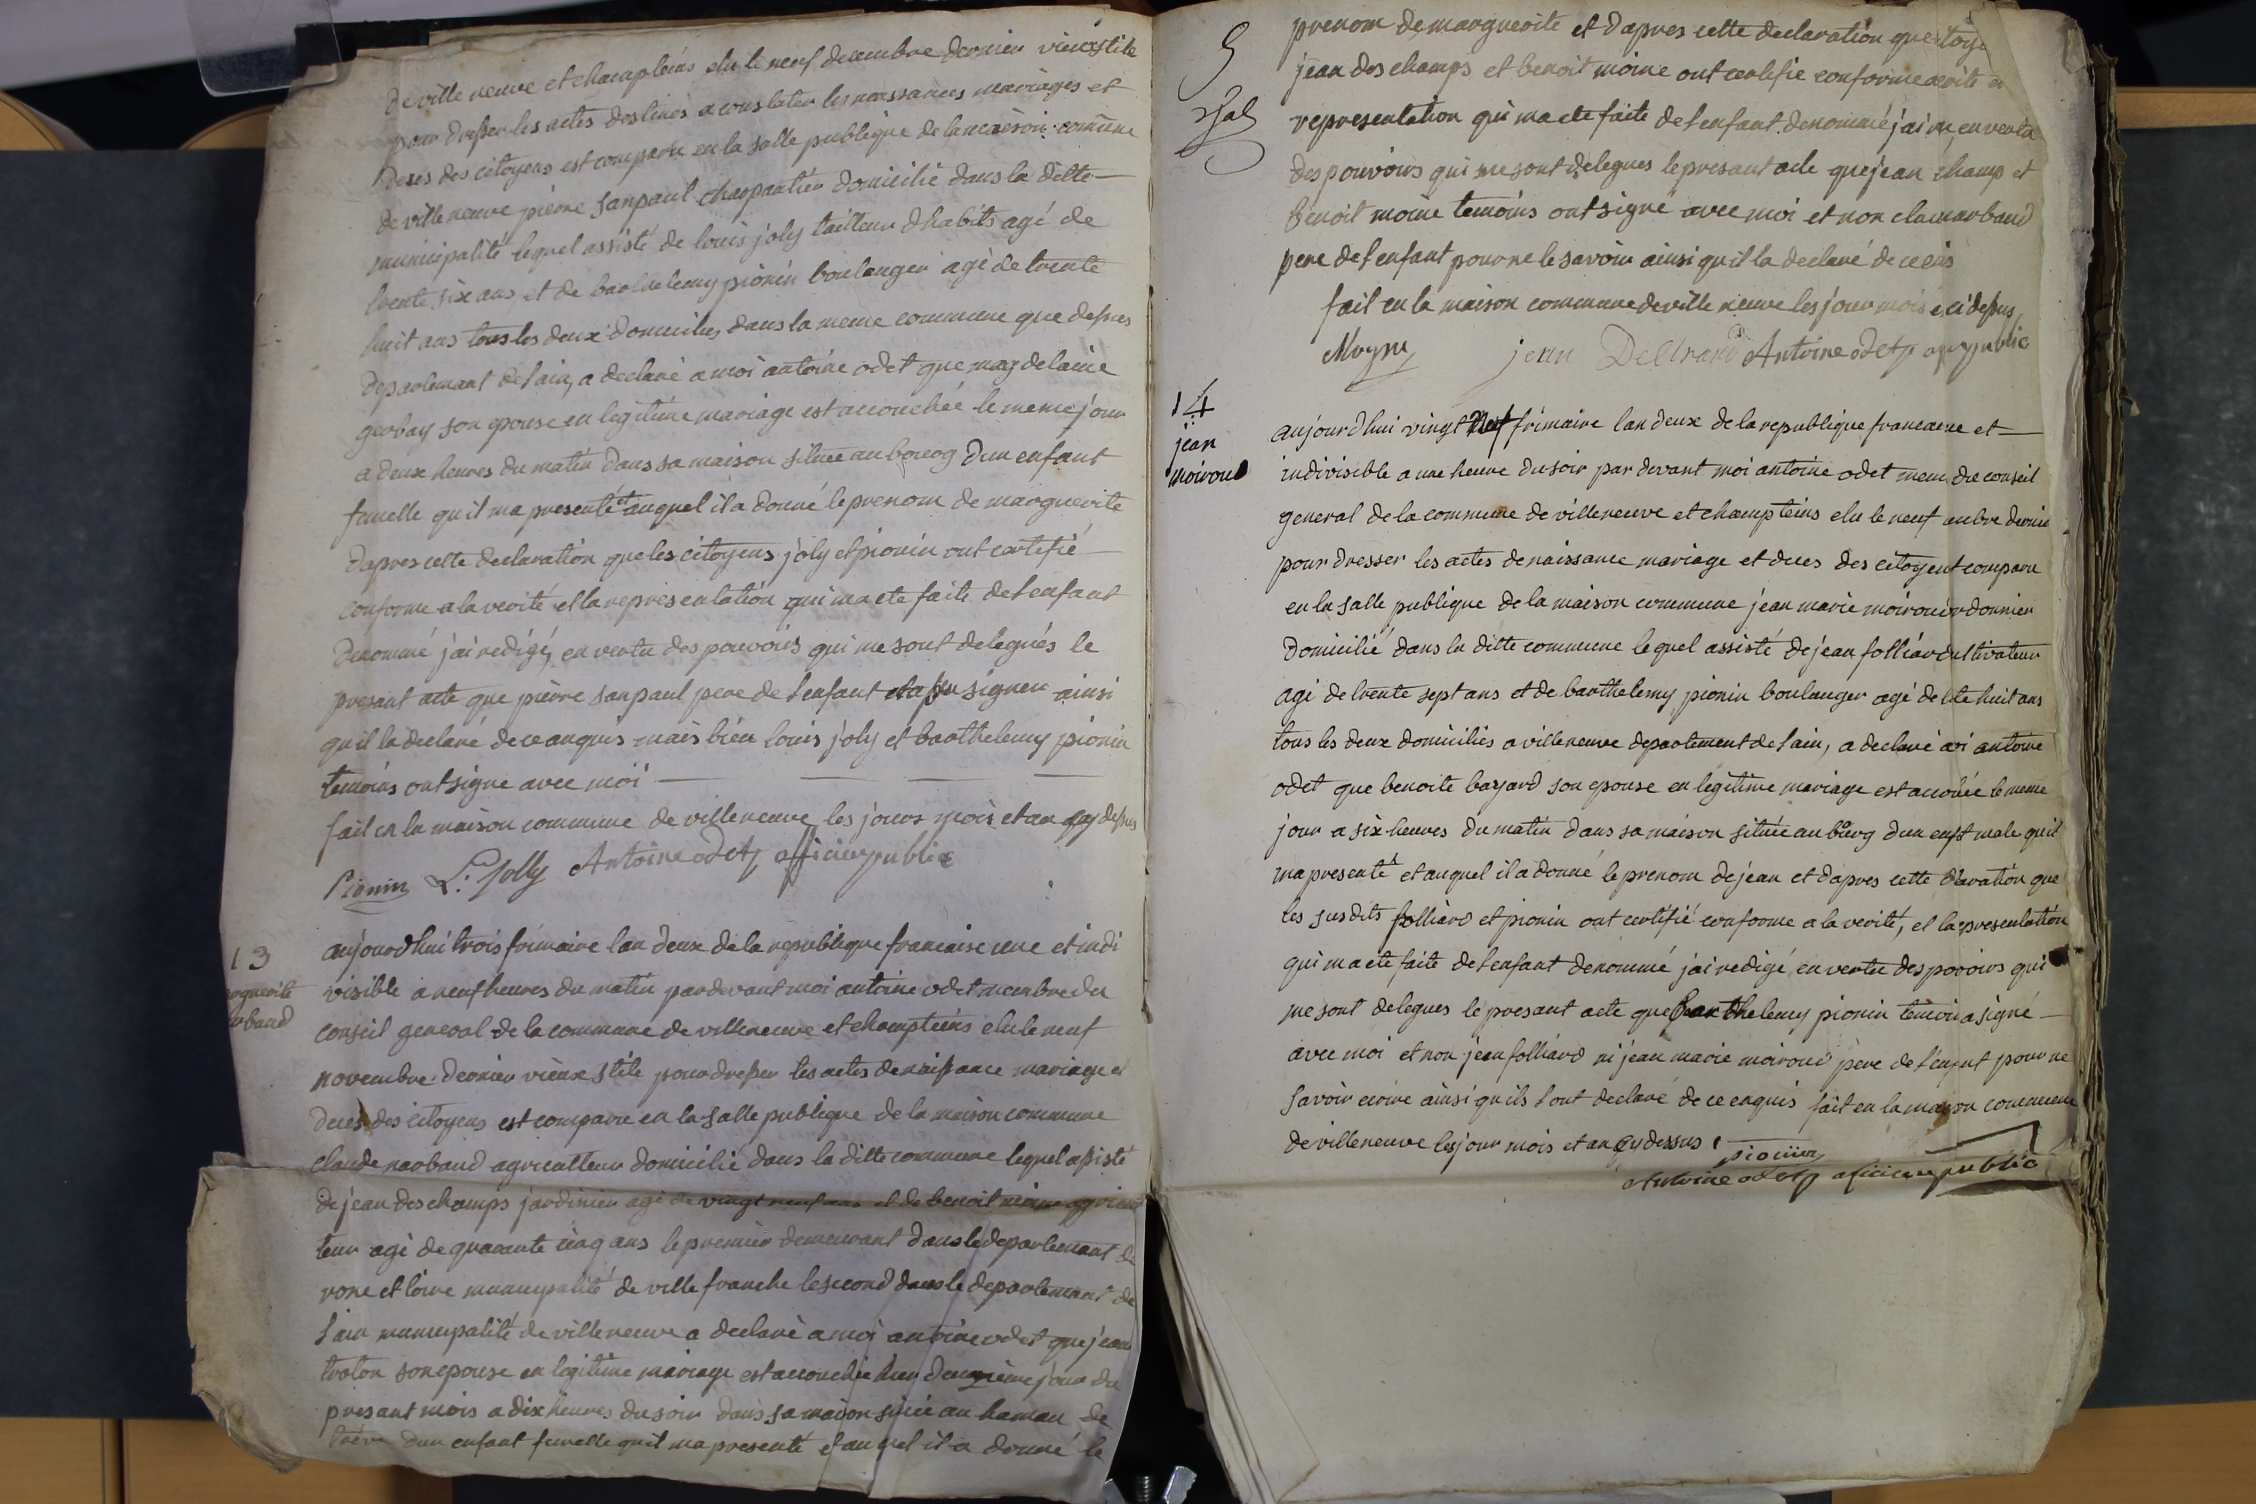 de ville neuve et champteins elu le neuf decembre dernier vieux stile
pour dresser les actes destinés a constater les naissances mariages et
deces des citoyens est comparu en la salle publique de la maison commune
de ville neuve pierre sanpaul charpantier domicilié dans la ditte
municipalité lequel assisté de louis joly tailleur dhabits agé de
trente six ans et de barthelemy pionin boulanger agé de trente
huit ans tous les deux domiciliés dans la meme commune que dessus
departemant de lain, a declaré a moi antoine odet que magdelaine
gerbay son epouse en legitime mariage est accouchée le meme jour
a deux heures du matin dans sa maison situee au bourg dun enfant
femelle quil ma presenté et auquel il a donné le prenom de marguerite
dapres cette declaration que les citoyens joly et pionin ont certifié
conforme a la verité et la representation qui ma ete faite de lenfant
denommé jai redigé, en vertu des pouvoirs qui me sont delegués le
presant acte que pierre sanpaul pere de lenfant signer ainsi
quil la declaré de ce anquis mais bien louis joly et barthelemy pionin
temoins ont signe avec moi
fait en la maison commune de villeneuve les jours mois et an dessus
Pionin L. Jolly Antoine odet officier public
13
marguerite
narband
aujourdhui trois frimaire lan deux de la republique francaise une et indi
visible a neuf heures du matin pardevant moi antoine odet membre du
conseil general de la commune de villeneuve et champteins elu le neuf
novembre dernier vieux stile pour dresser les actes de naissance mariage et
deces des citoyens est comparu en la salle publique de la maison commune
claude narband agriculteur domicilié dans la ditte commune lequel assisté
de jean deschamps jardinier agé de vingt neuf ans et de benoit moine agricul
teur agé de quarante cinq ans le premier demeurant dans le departemant de
rone et loire municipalité de ville franche le second dans le departemant de
lain municipalité de villeneuve a declaré a moi antoine odet que jeanne
son epouse en legitime mariage est accouchée hier deuxième jour du
presant mois a dix heures du soir dans sa maison au hamau de
dun enfant femelle quil ma presenté et auquel il a donné le
prenom de marguerite et dapres cette declaration que
jean des champs et benoit moine ont certifie conforme
representation qui ma ete faite de lenfant denommé jai en vertu
des pouvoirs qui me sont delegues le presant acte que jean champ et
benoit moine temoins ont signé avec moi et non
pere de lenfant pour ne le savoir ainsi quil la declaré de
fait en la maison commune de ville neuve les jour mois ci dessus
Moyne jean Antoine odet public
14
jean
moiroud
aujourdhui vingt frimaire lan deux de la republique francaise et
indivisible a une heure du soir par devant moi antoine odet mem dre conseil
general de la commune de villeneuve et champteins elu le neuf
pour dresser les actes de naissance mariage et deces des citoyent comparu
en la salle publique de la maison commune jean marie
domicilié dans la ditte commune lequel assisté de jean
agé de trente sept ans et de barthelemy pionin boulanger agé de huit ans
tous les deux domiciliés a villeneuve departement de lain, a declaré antoine
odet que benoite bayard son epouse en legitime mariage est le meme
jour a six heures du matin dans sa maison située au bourg dun male quil
ma presenté et auquel il a donné le prenom de jean et dapres cette que
les susdits folliard et pionin ont certifié conforme a la verité, et la presentation
qui ma ete faite de lenfant denommé jai redigé, en vertu des qui
me sont delegues le presant acte que Barthelemy pionin temoin a signé
avec moi et non jean folliard ni jean marie moiroud pere de pour ne
savoir ecrire ainsi quils lont declaré de ce enquis fait en la maison commune
de villeneuve les jour mois et an cy dessus
pionin
Antoine odet officier public